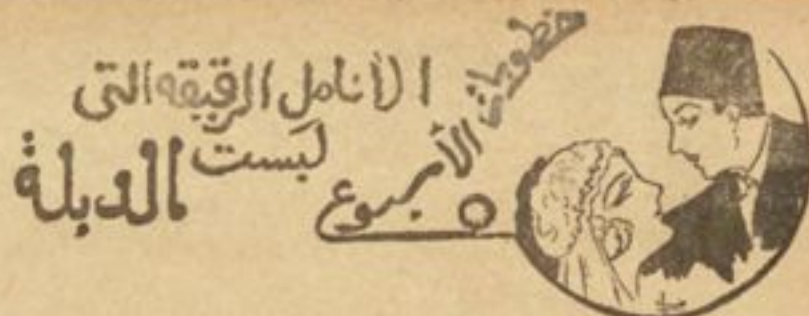 مخطوبات الأسبوع
الأنامل الرقيقة التى
لبست الدبلة